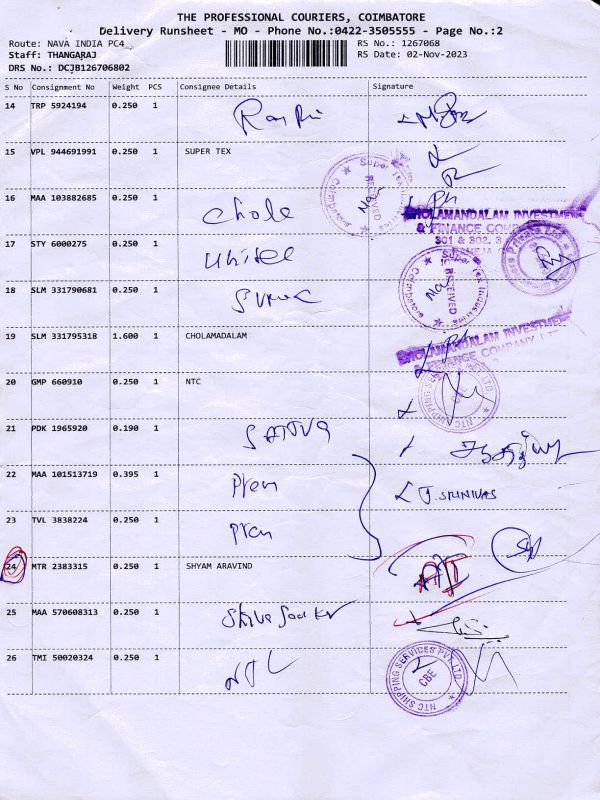 THE PROFESSIONAL COURIERS, COIMBATORE
Delivery Runsheet - MO - Phone No.:0422-3505555 - Page No.:2
Route: NAVA INDIA PC4 RS No.: 1267068
Staff: THANGARAJ RS Date: 02-Nov-2023
DRS No.: DCJB126706802
S No Consignment No Weight PCS Consignee Details Signature
14 TRP 5924194 0.250 1
15 VPL 944691991 0.250 1 SUPER TEX
16 MAA 103882685 0.250 1 Chola
CHOLAMANDALAM INVESTMENT
& FINANCE COMPANY
17 STY 6000275 0.250 1 United
301 & 302, 3
RECEIVED
18 SLM 331790681 0.250 1
RECEIVED
19 SLM 331795318 1.600 1 CHOLAMADALAM
CHOLAMANDALAM INVESTMENT
& FINANCE COMPANY LTD
20 GMP 660910 0.250 1 NTC
NTC SHIPPING SERVICES PVT.LTD
CBE
21 PDK 1965920 0.190 1
22 MAA 101513719 0.395 1 Prem J. SRINIVAS
23 TVL 3838224 0.250 1 Prem
24 MTR 2383315 0.250 1 SHYAM ARAVIND
25 MAA 570608313 0.250 1
26 TMI 50020324 0.250 1
NTC SHIPPING SERVICES PVT.LTD
CBE